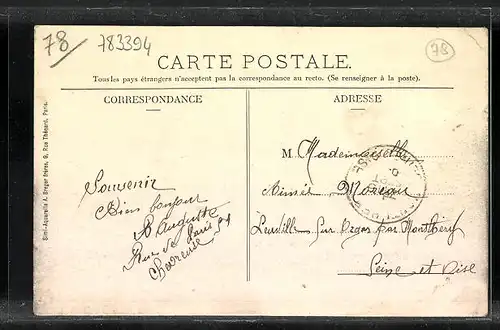 78
783394
78
CARTE POSTALE.
Tous les pays étrangers n'acceptent pas la correspondance au recto. (Se renseigner à la poste).
CORRESPONDANCE
ADRESSE
Simili-Aquarelle A. Breger frères, 9, Rue Thénard, Paris.
M. Mademoiselle
Aimée Moreau
Leudille sur Orges par Montlhéry
Seine et Oise
Souvenir
Bien bonjour
Auguste
Rue de Paris 54
Chevreuse